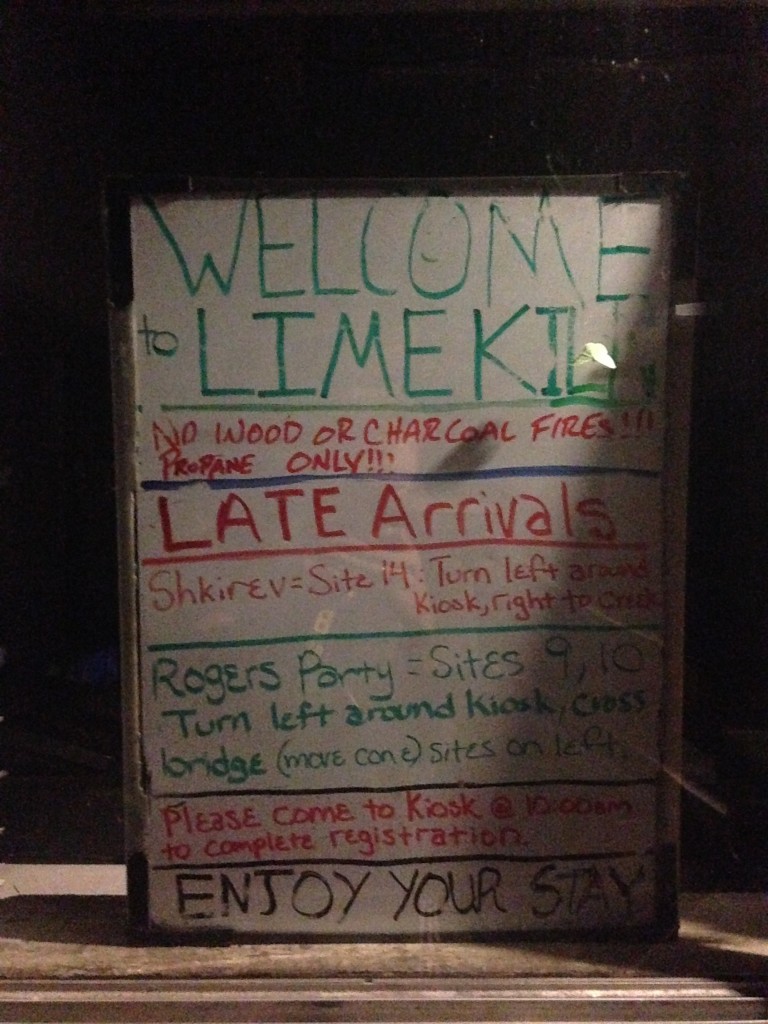 WELCOME
to LIMEKILN
NO WOOD OR CHARCOAL FIRES!!!
PROPANE ONLY!!!
LATE Arrivals
Shkirev = Site 14: Turn left around
Kiosk, right to Creek
Rogers Party = Sites 9, 10
Turn left around Kiosk, cross
bridge (move cone) sites on left.
Please come to Kiosk @ 10:00am
to complete registration.
ENJOY YOUR STAY